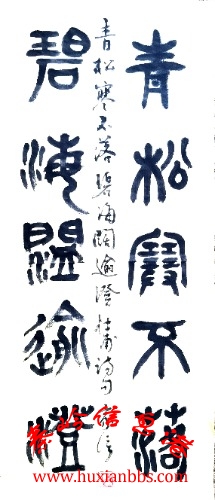 青松寒不落
碧海闊逾澄
青松寒不落碧海闊逾澄杜甫詩句
www.huxianbbs.com